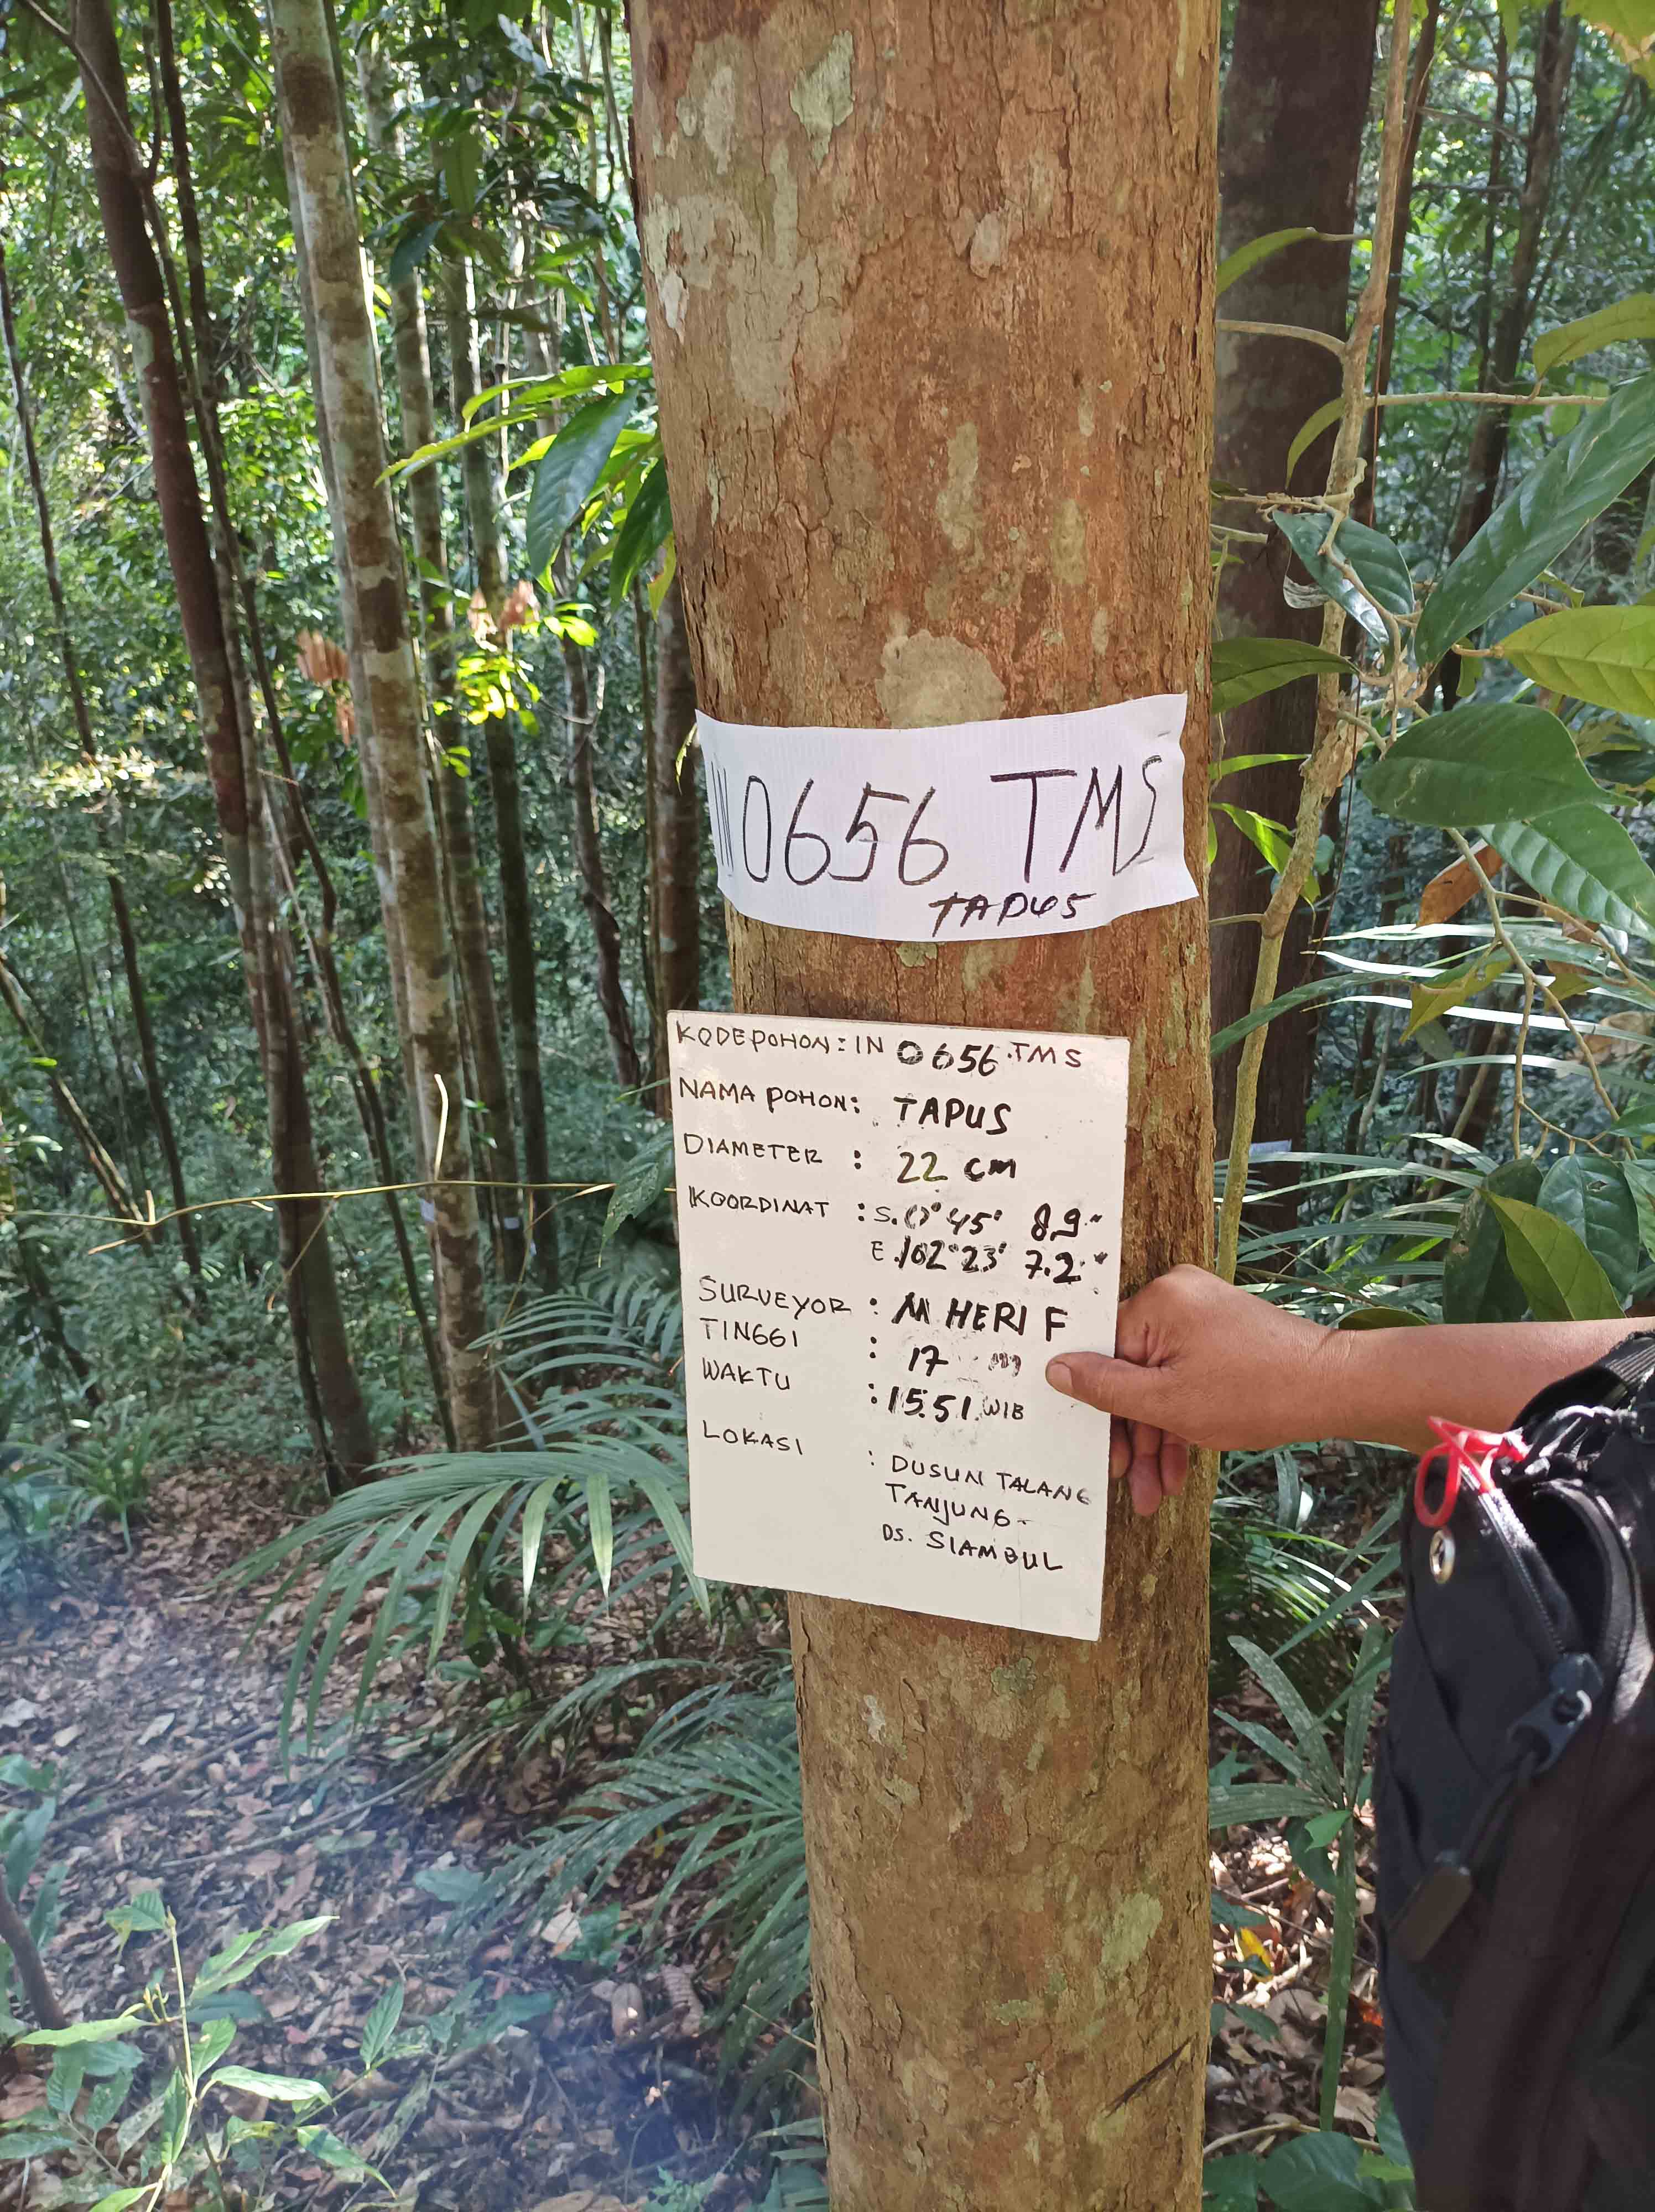 IN 0656 TMS
TAPUS
KODE POHON : IN 0656 TMS
NAMA POHON : TAPUS
DIAMETER : 22 cm
KOORDINAT : S. 0° 45' 8.9"
E. 102° 23' 7.2"
SURVEYOR : M HERI F
TINGGI : 17 m
WAKTU : 15.51 WIB
LOKASI : DUSUN TALANG
TANJUNG -
DS. SIAMBUL